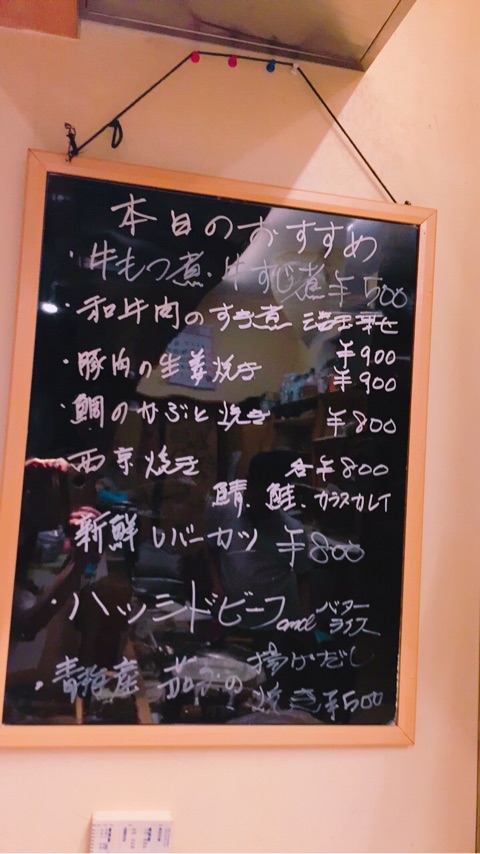 本日のおすすめ
・牛もつ煮・牛すじ煮 ¥500
・和牛肉のすき煮 温玉乗せ
¥900
・豚肉の生姜焼き ¥900
・鯛のかぶと焼き ¥800
・西京焼き 各¥800
鯖、鮭、カラスカレイ
新鮮レバーカツ ¥800
・ハッシドビーフ and バター
ライス
・青森産 茄子の 揚げだし
焼き ¥500